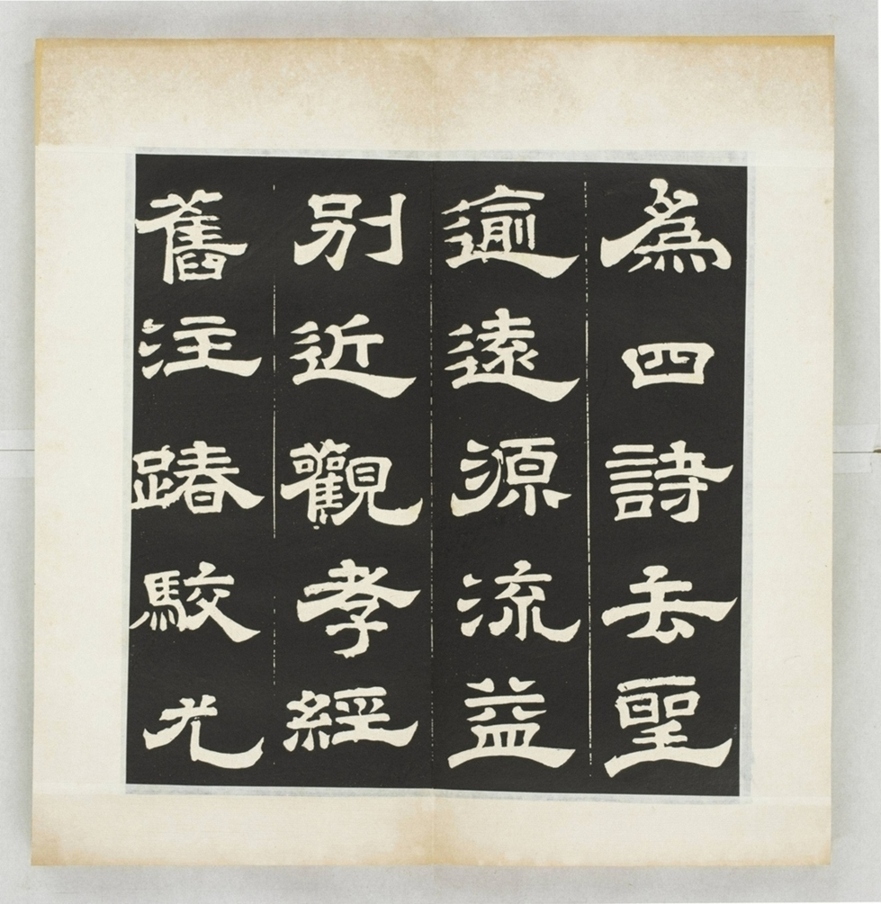 爲四詩去聖
逾遠源流益
別近觀孝經
舊注踳駮尤